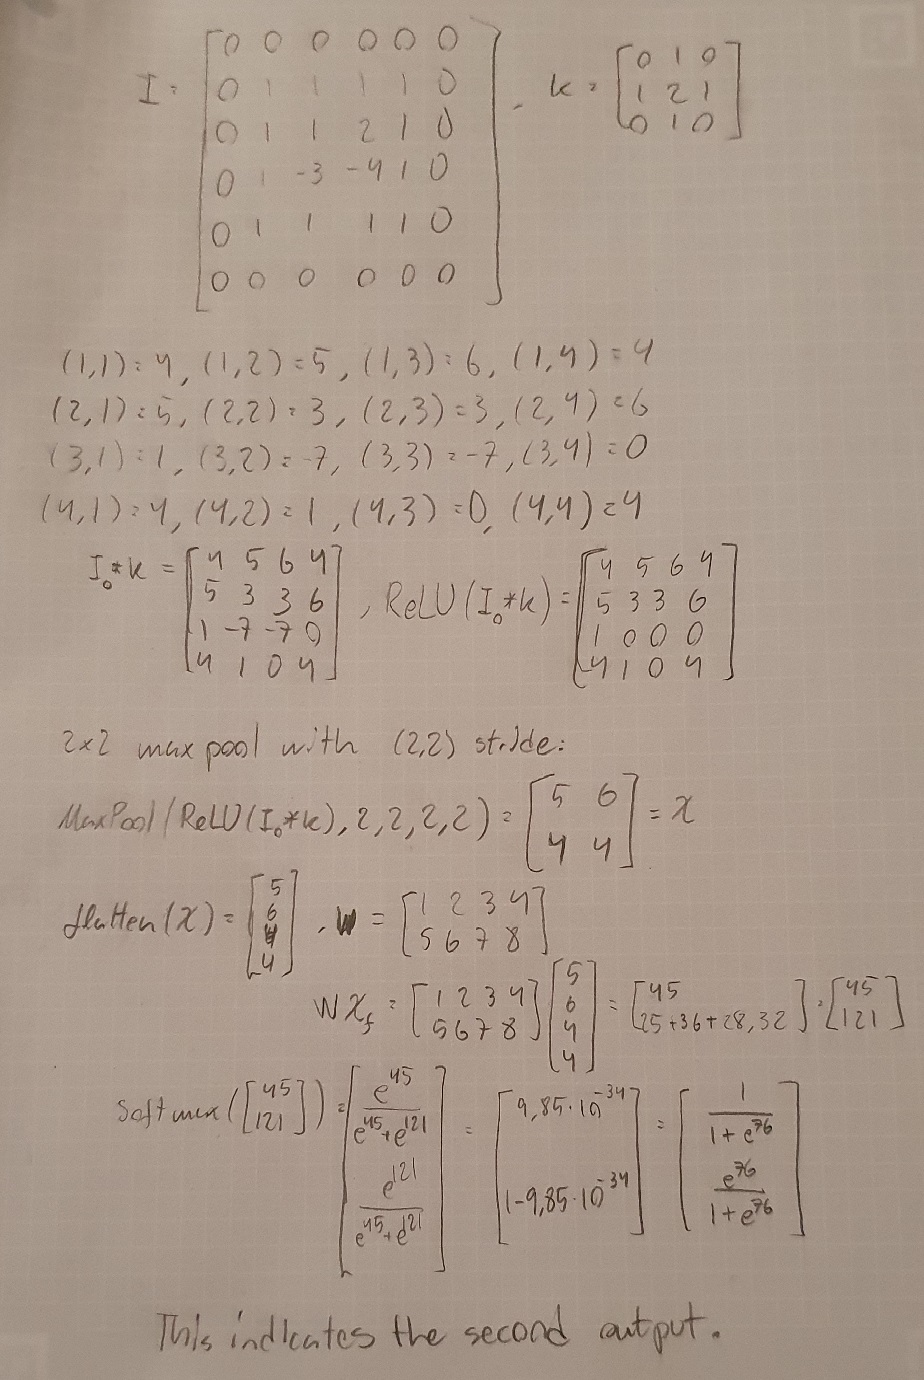 I = [0 0 0 0 0 0
0 1 1 1 1 0
0 1 1 2 1 0
0 1 -3 -4 1 0
0 1 1 1 1 0
0 0 0 0 0 0], k = [0 1 0
1 2 1
0 1 0]
(1,1)=4, (1,2)=5, (1,3)=6, (1,4)=4
(2,1)=5, (2,2)=3, (2,3)=3, (2,4)=6
(3,1)=1, (3,2)=-7, (3,3)=-7, (3,4)=0
(4,1)=4, (4,2)=1, (4,3)=0, (4,4)=4
I₀*k = [4 5 6 4
5 3 3 6
1 -7 -7 0
4 1 0 4], ReLU(I₀*k) = [4 5 6 4
5 3 3 6
1 0 0 0
4 1 0 4]
2x2 max pool with (2,2) stride:
MaxPool(ReLU(I₀*k),2,2,2,2) = [5 6
4 4] = x
flatten(x) = [5
6
4
4], W = [1 2 3 4
5 6 7 8]
Wx_f = [1 2 3 4
5 6 7 8] [5
6
4
4] = [45
25+36+28,32] = [45
121]
Softmax([45
121]) = [e^45/(e^45+e^121)
e^121/(e^45+e^121)] = [9,85·10^-34
1-9,85·10^-34] = [1/(1+e^76)
e^76/(1+e^76)]
This indicates the second output.